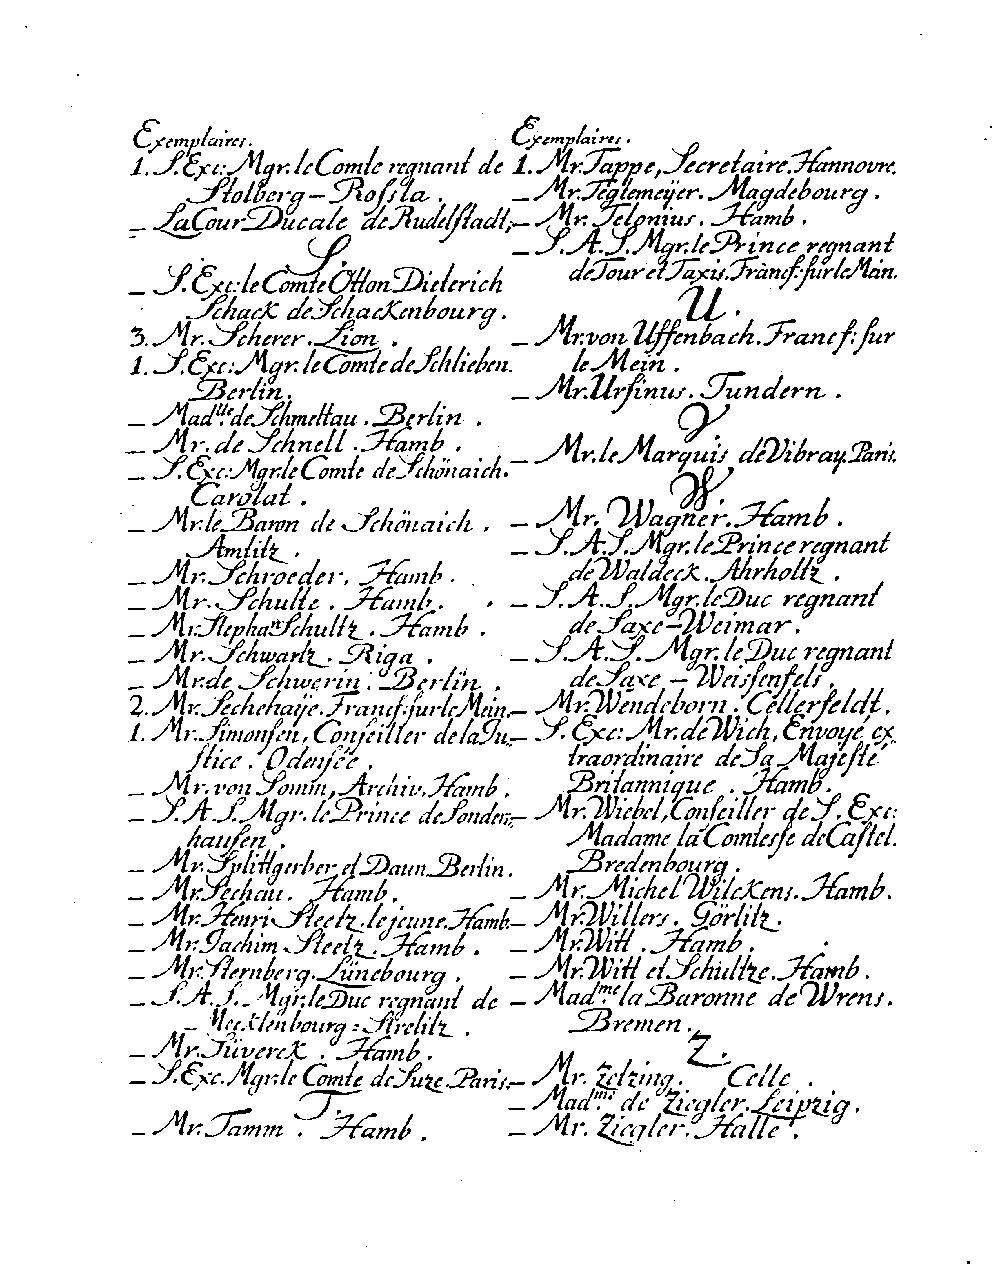 Exemplaires.
1. S. Exc: Mgr. le Comte regnant de
Stolberg – Rossla.
_ La Cour Ducale de Rudelstadt,
S.
_ S. Exc: le Comte Otton Dieterich
Schack de Schackenbourg.
3. Mr. Scherer. Lion.
1. S. Exc: Mgr. le Comte de Schlieben.
Berlin.
_ Madlle de Schmettau. Berlin.
_ Mr. de Schnell. Hamb.
_ S. Exc: Mgr. le Comte de Schönaich.
Carolat.
_ Mr. le Baron de Schönaich.
Amtitz.
_ Mr. Schroeder. Hamb.
_ Mr. Schulte. Hamb.
_ Mr. Stephan Schultz. Hamb.
_ Mr. Schwartz. Riga.
_ Mr. de Schwerin. Berlin.
2. Mr. Sechehaÿe. Francf: sur le Mein.
1. Mr. Simonsen, Conseiller de la Ju_
stice. Odensée.
_ Mr. von Somm, Archiv. Hamb.
_ S. A. S. Mgr. le Prince de Sonders_
hausen.
_ Mr. Splittgerber et Daun Berlin.
_ Mr. Stechau. Hamb.
_ Mr. Henri Steetz. le jeune. Hamb.
_ Mr. Jachim Steetz. Hamb.
_ Mr. Sternberg. Lünebourg.
_ S. A. S. Mgr. le Duc regnant de
Mecklenbourg = Strelitz.
_ Mr. Stüverck. Hamb.
_ S. Exc. Mgr. le Comte de Suze. Paris.
T.
_ Mr. Tamm. Hamb.
Exemplaires.
1. Mr. Tappe, Secretaire. Hannovre.
_ Mr. Teglemeÿer. Magdebourg.
_ Mr. Telonius. Hamb.
_ S. A. S. Mgr. le Prince regnant
de Tour et Taxis. Francf: sur le Mein.
U.
_ Mr. von Uffenbach. Francf: sur
le Mein.
_ Mr. Ursinus. Tundern.
V
_ Mr. le Marquis de Vibray. Paris.
W.
_ Mr. Wagner. Hamb.
_ S. A. S. Mgr. le Prince regnant
de Waldeck. Ahrholtz.
_ S. A. S. Mgr. le Duc regnant
de Saxe – Weimar.
_ S. A. S. Mgr. le Duc regnant
de Saxe – Weissenfels.
_ Mr. Wendeborn. Cellerfeldt.
_ S. Exc: Mr. de Wich, Envoyé ex_
traordinaire de Sa Majesté
Britannique. Hamb.
_ Mr. Wiebel, Conseiller de S. Exc:
Madame la Comtesse de Castel.
Bredenbourg.
_ Mr. Michel Wilckens. Hamb.
_ Mr. Willers. Görlitz.
_ Mr. Witt. Hamb.
_ Mr. Witt et Schultze. Hamb.
_ Madme la Baronne de Wrens.
Bremen.
Z.
_ Mr. Zelzing. Celle.
_ Madme de Ziegler. Leipzig.
_ Mr. Ziegler. Halle.